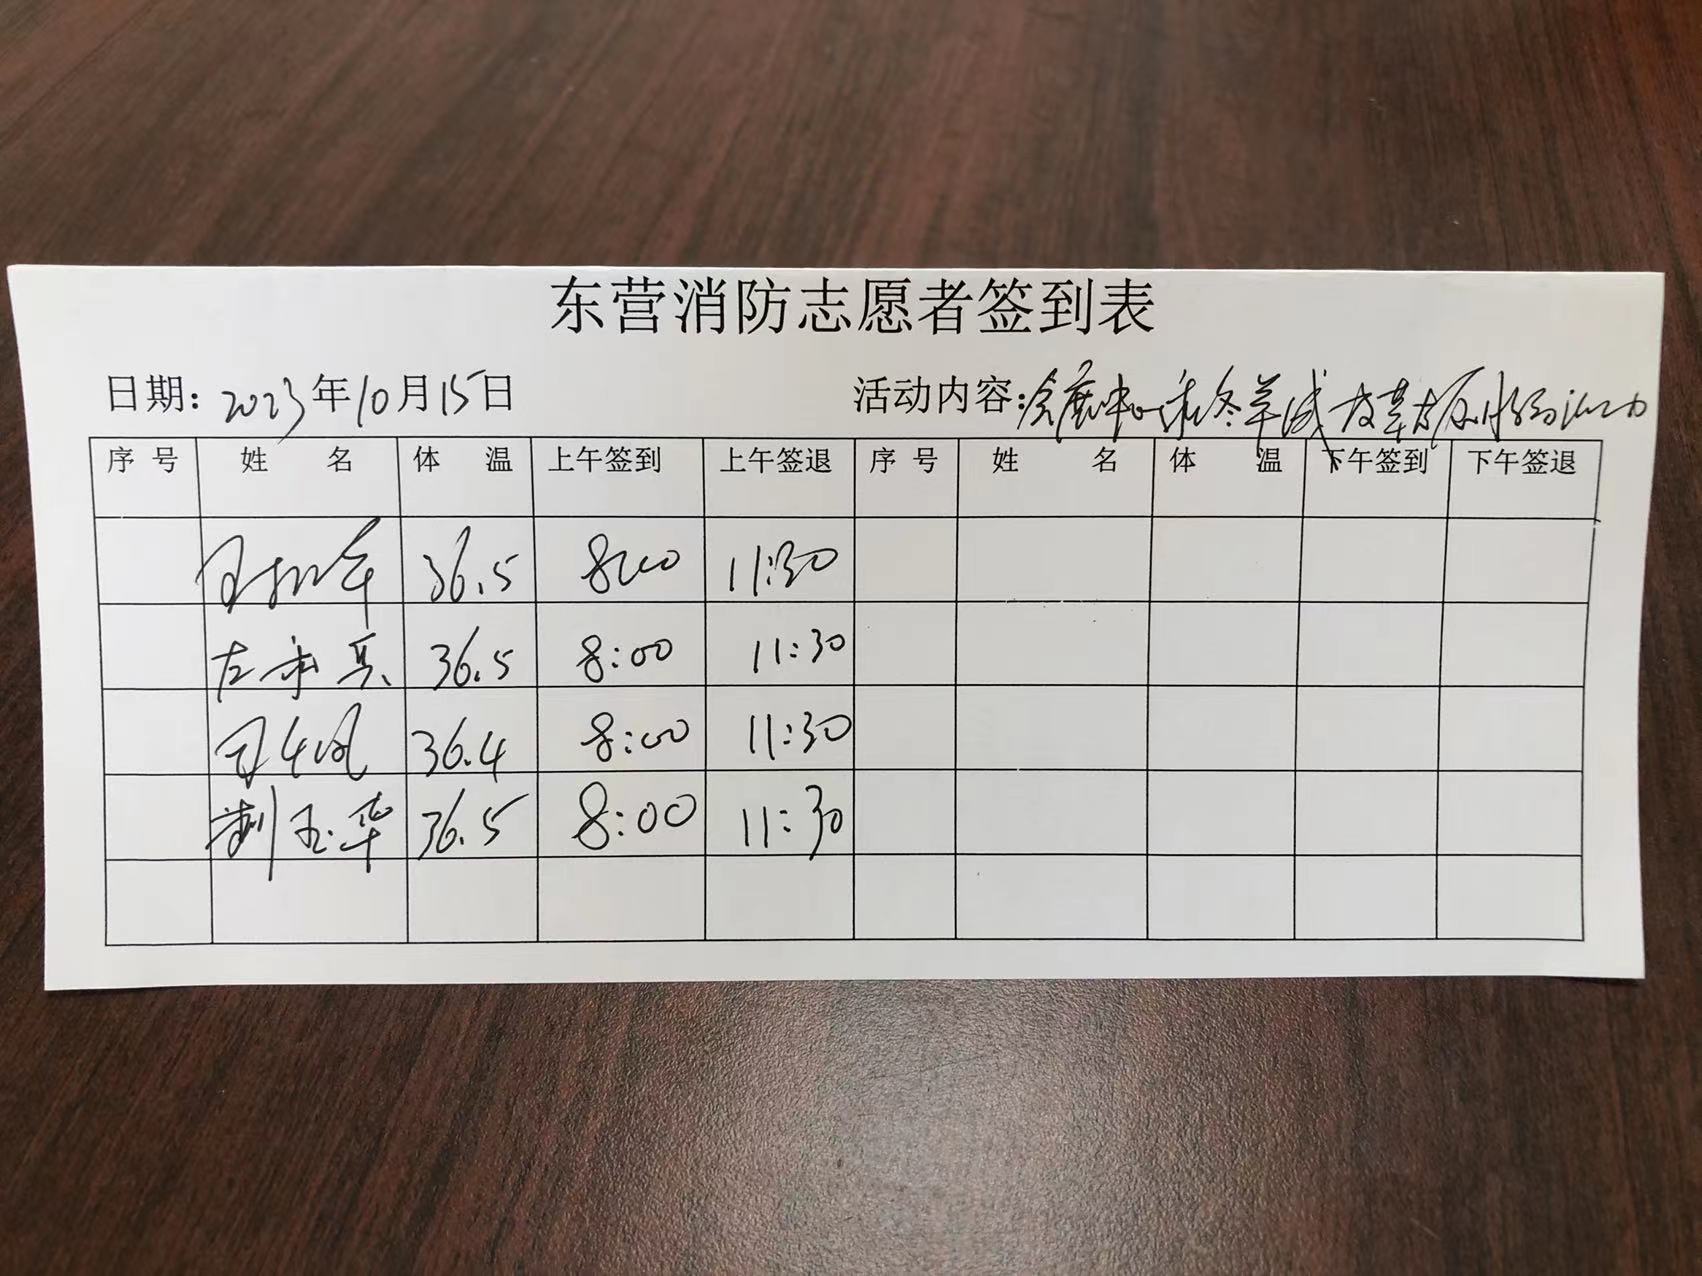 东营消防志愿者签到表
日期: 2023年10月15日 活动内容: 会展中心秋冬羊绒皮草大
序号 姓名 体温 上午签到 上午签退 序号 姓名 体温 下午签到 下午签退
36.5 8:00 11:30
左秉真 36.5 8:00 11:30
36.4 8:00 11:30
荆玉华 36.5 8:00 11:30